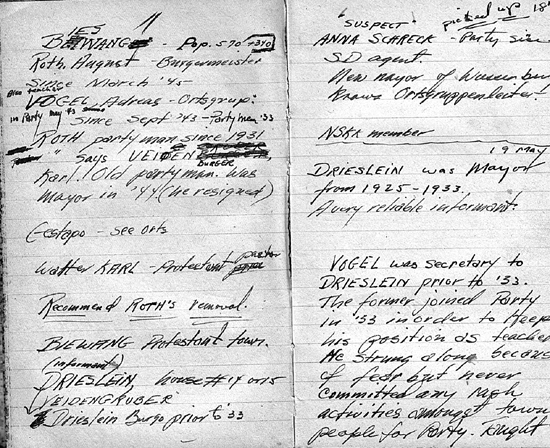 BIESWANG - Pop. 570 +340
Roth. August - Burgermeister
Since March '45
Also teacher
VOGEL Adreas - Ortsgrup:
in Party
Since Sept '43 - Party mem '33
ROTH party man since 1931
" Says VEIDEN
BURGER
Karl. Old party man. Was
Mayor in '44 (he resigned)
Gestapo - see orts
Walter KARL - Protestant pastor
Recommend ROTH'S removal.
BIEWANG Protestant town.
(informant)
DRIESLEIN, house #14 or 15
VEIDENGRUBER
Drieslein Burgo prior to '33
"SUSPECT" picked up 18
ANNA SCHRECK - Party
SD agent.
New mayor of
Knows Ortsgruppenleiter!
NSKK member
19 May
DRIESLEIN was Mayor
from 1925-1933.
A very reliable informant.
VOGEL was secretary to
DRIESLEIN prior to '33.
The former joined Party
in '33 in order to keep
his position as teache
He strung along becaus
of fear but never
committed any rash
activities amongst town
people for Party. Knight